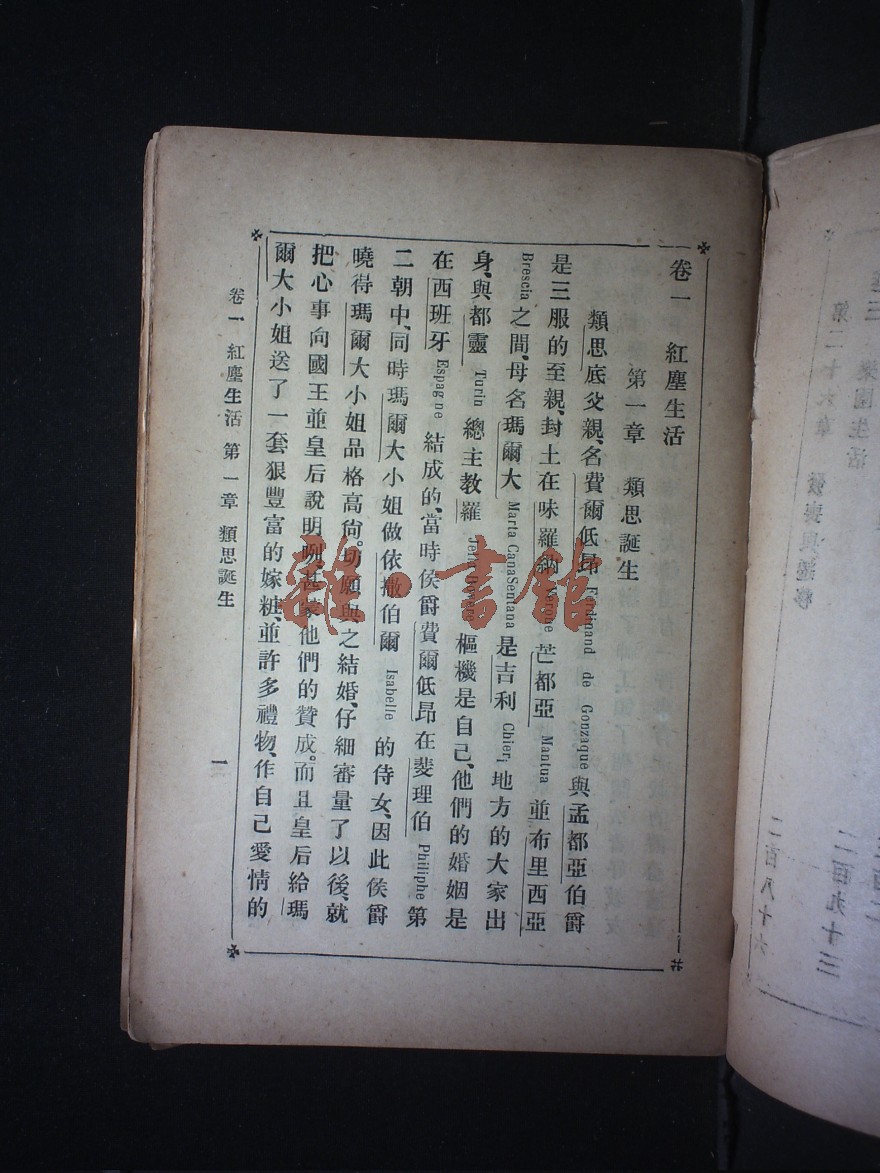 卷一 紅塵生活
第一章 類思誕生
類思底父親、名費爾低昂 Ferdinand de Gonzaque 與孟都亞伯爵
是三服的至親、封土在味羅納 Varone 芒都亞 Mantua 並布里西亞
Brescia 之間、母名瑪爾大 Marta CanaSentana 是吉利 Chieri 地方的大家出
身、與都靈 Turin 總主教羅 樞機是自己、他們的婚姻是
在西班牙 Espagne 結成的、當時侯爵費爾低昂在斐理伯 Philiphe 第
二朝中、同時瑪爾大小姐做依撒伯爾 Isabelle 的侍女、因此侯爵
曉得瑪爾大小姐品格高尙。切願與之結婚、仔細審量了以後、就
把心事向國王並皇后說明咧、甚蒙他們的贊成。而且皇后給瑪
爾大小姐送了一套狠豐富的嫁粧、並許多禮物、作自己愛情的
卷一 紅塵生活 第一章 類思誕生 一
雜·書館
第二十六章
樂園生活
二百九十三
二百八十六